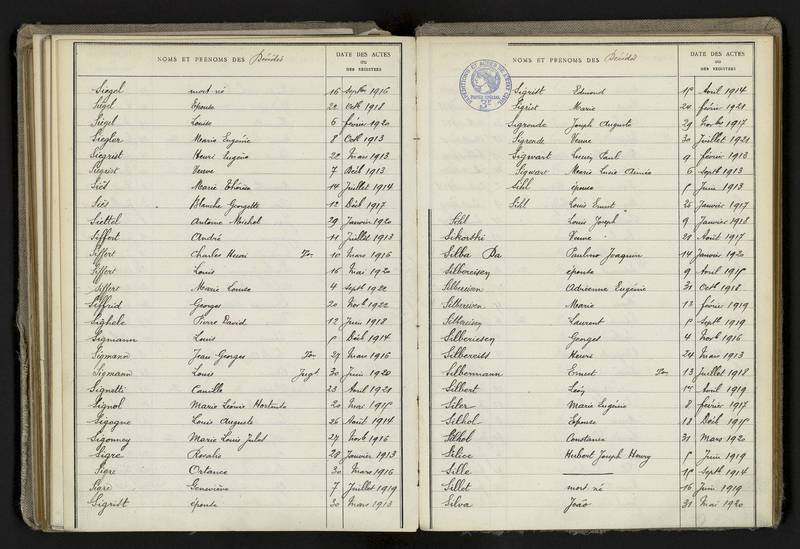 NOMS ET PRÉNOMS DES Décédés
DATE DES ACTES
OU
DES REGISTRES
Siegel mort né 16 Septbre 1916
Siegel Epouse 22 Octb 1918
Siegel Louise 6 février 1920
Siegler Marie Eugénie 8 Octb 1913
Siegrist Henri Eugène 22 Mars 1913
Siegrist Veuve 7 Décb 1913
Siès Marie Thérèse 14 Juillet 1914
Siès Blanche Georgette 12 Décb 1917
Siettel Antoine Michel 29 Janvier 1920
Siffert André 11 Juillet 1913
Siffert Charles Henri 10 Mars 1916
Siffert Louis 16 Mai 1920
Siffert Marie Louise 4 Septb 1922
Siffrid Georges 20 Novb 1922
Sighele Pierre David 12 Juin 1918
Sigmann Louis Décb 1914
Sigmann Jean Georges 29 Mars 1916
Sigmann Louis Jugt 30 Juin 1920
Signetti Camille 23 Avril 1921
Signol Marie Léonie Hortense 20 Mai
Sigogne Louis Auguste 26 Août 1914
Sigonney Marie Louis Jules 27 Novb 1916
Sigre Rosalie 28 Janvier 1913
Sigre Ortance 30 Mars 1916
Sigre Geneviève 7 Juillet 1919
Sigrist épouse 30 Mars 1913
NOMS ET PRÉNOMS DES Décédés
DATE DES ACTES
OU
DES REGISTRES
EXPÉDITIONS ET ACTES DE L'ÉTAT CIVIL
PAPIER SPÉCIAL
3F
Sigrist Edmond Avril 1914
Sigrist Marie 24 février 1921
Sigronde Joseph Auguste 29 Novbr 1917
Sigronde Veuve 30 Juillet 1921
Sigwart Lucien Paul 9 février 1913
Sigwart Marie Lucie Aimée 6 Septb 1913
Sihl épouse Juin 1913
Sihl Louis Ernest 26 Janvier 1917
Sihl Louis Joseph 9 Janvier 1918
Sikorski Veuve 20 Août 1917
Silba Da Paulino Joaquim 14 Janvier 1920
Silbereisen épouse 9 Avril
Silbereisen Adrienne Eugénie 31 Octb 1918
Silbereisen Marie 13 février 1919
Silbereisen Laurent Septb 1919
Silberiesen Georges 4 Novb 1916
Silbereiss Henri 24 Mars 1913
Silbermann Ernest 13 Juillet 1918
Silbert Léon Avril 1919
Siler Marie Eugénie 8 février 1917
Silhol Epouse 18 Décb
Silhol Constance 31 Mars 1920
Silice Herbert Joseph Henry Juin 1919
Sille Septb 1914
Sillet mort né 16 Juin 1919
Silva João 31 Mai 1920